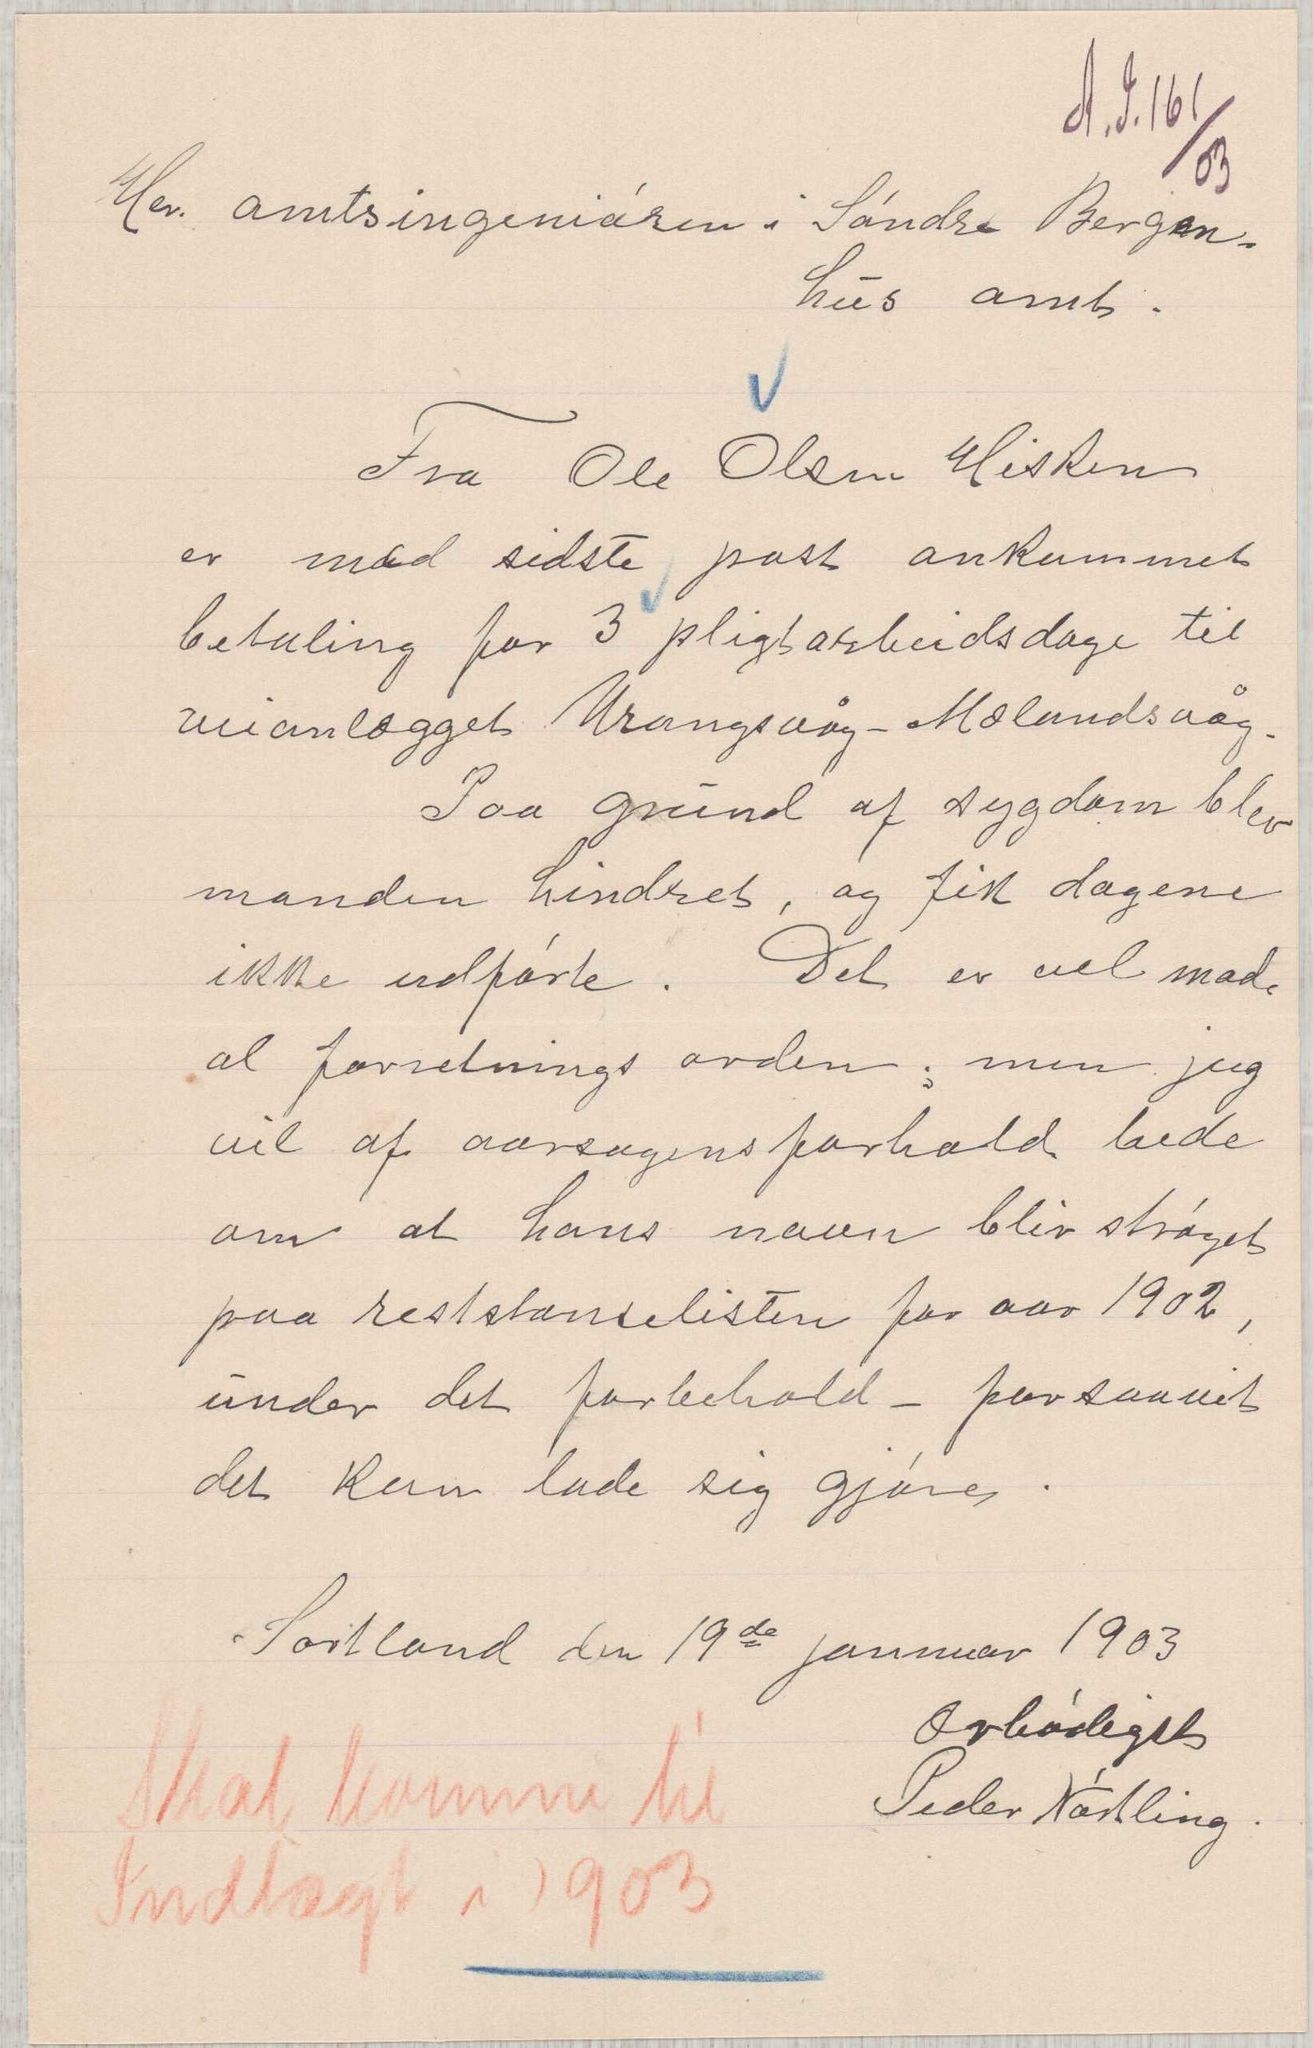 A.I. 161/03
Hr. amtsingeniören i Söndre Bergen-
hus amt.
Fra Ole Olsen Hisken
er med sidste post ankommet
betaling for 3 pligtarbeidsdage til
veianlægget Urangsvåg-Mælandsvåg.
Paa grund af sygdom blev
manden hindret, og fik dagene
ikke udförte. Det er vel mod
al forretningsorden; men jeg
vil af aarsagens forhold bede
om at hans navn bliv ströget
paa reststanselisten for aar 1902,
under det forbehold - forsaavit
det kan lade sig gjöres.
Sortland den 19de januar 1903
Ærbödigst
Peder Nörtling.
Skal komme til
Indtægt i 1903